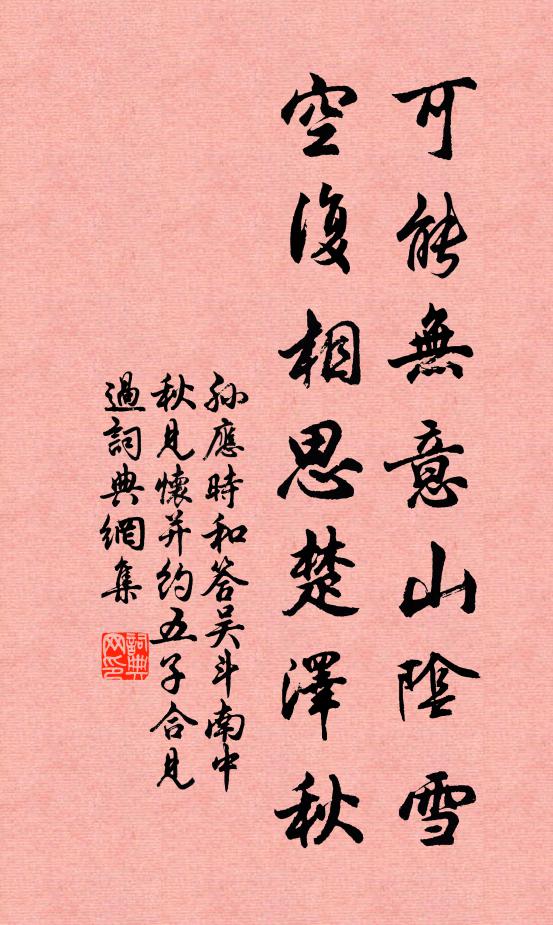 可能無意山陰雪
空復相思楚澤秋
孙應時和答吴斗南中
秋見懷并約五子合見
過詞典網集
詞典
网印